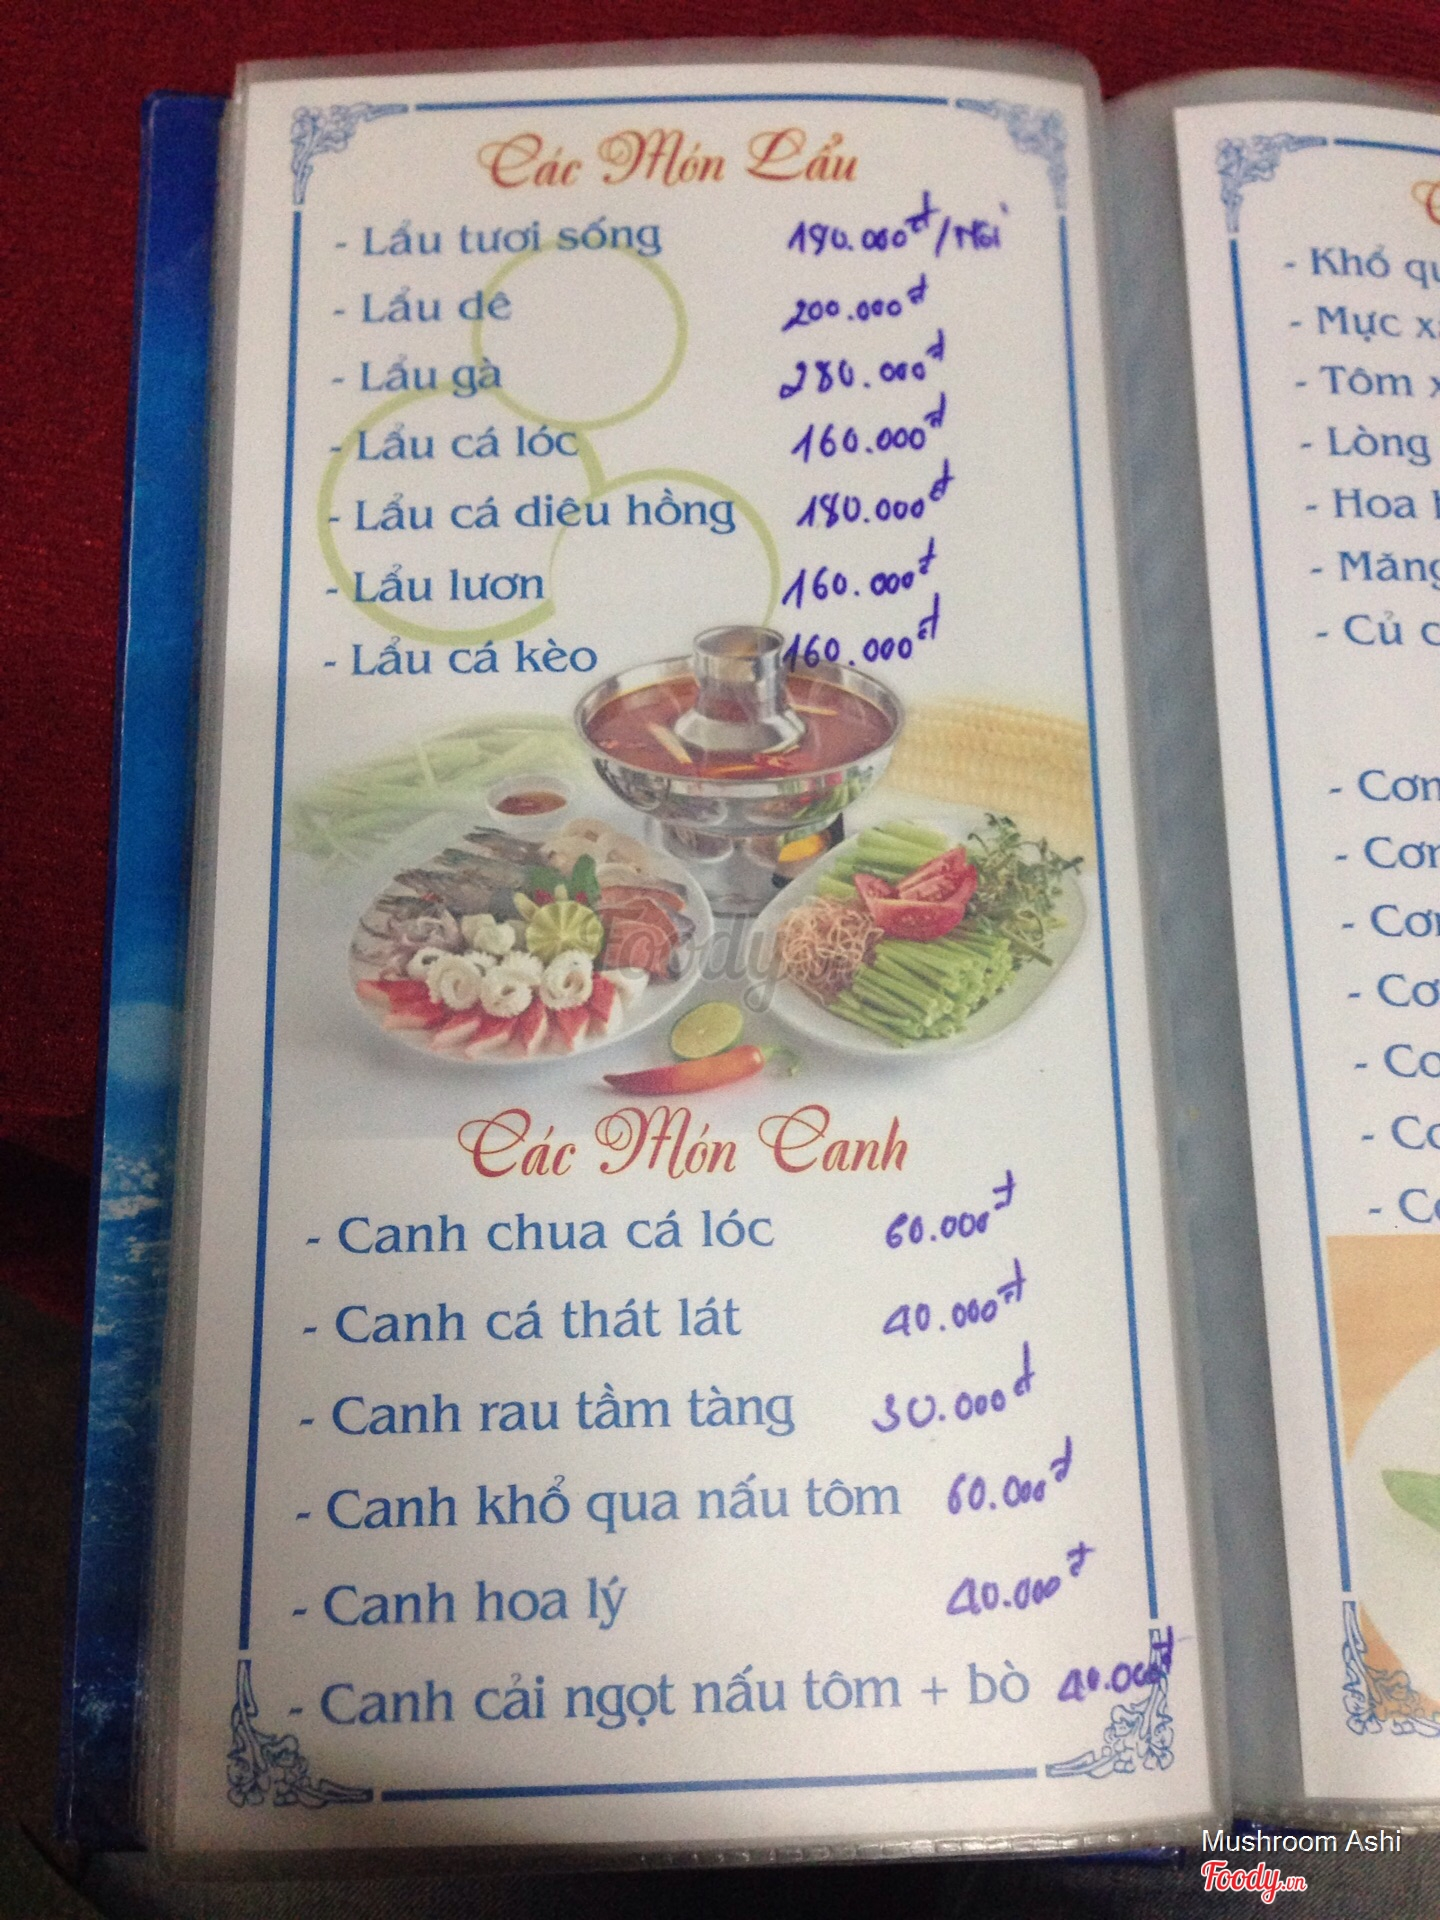 Các Món Lẩu
- Lẩu tươi sống 190.000đ/Nồi
- Lẩu dê 200.000đ
- Lẩu gà 280.000đ
- Lẩu cá lóc 160.000đ
- Lẩu cá diêu hồng 180.000đ
- Lẩu lươn 160.000đ
- Lẩu cá kèo 160.000đ
Foody.vn
Các Món Canh
- Canh chua cá lóc 60.000đ
- Canh cá thát lát 40.000đ
- Canh rau tầm tàng 30.000đ
- Canh khổ qua nấu tôm 60.000đ
- Canh hoa lý 40.000đ
- Canh cải ngọt nấu tôm + bò 40.000đ
- Khổ
- Mực
- Tôm
- Lòng
- Hoa
- Củ
Mushroom Ashi
Foody.vn